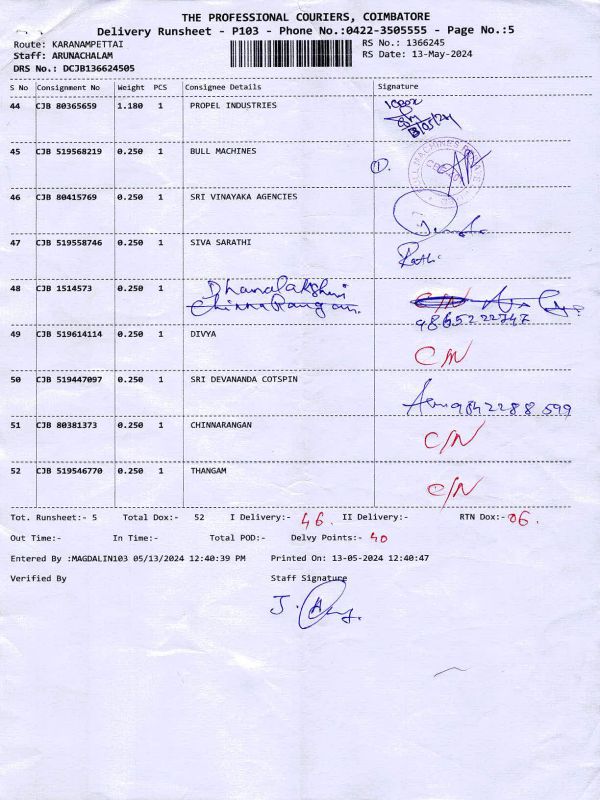 THE PROFESSIONAL COURIERS, COIMBATORE
Delivery Runsheet - P103 - Phone No.:0422-3505555 - Page No.:5
Route: KARANAMPETTAI RS No.: 1366245
Staff: ARUNACHALAM RS Date: 13-May-2024
DRS No.: DCJB136624505
S No Consignment No Weight PCS Consignee Details Signature
44 CJB 80365659 1.180 1 PROPEL INDUSTRIES
13/05/24
45 CJB 519568219 0.250 1 BULL MACHINES
46 CJB 80415769 0.250 1 SRI VINAYAKA AGENCIES
47 CJB 519558746 0.250 1 SIVA SARATHI
48 CJB 1514573 0.250 1 Dhanalakshmi
Chinna Rangan
9865222747
49 CJB 519614114 0.250 1 DIVYA C/N
50 CJB 519447097 0.250 1 SRI DEVANANDA COTSPIN 9842288599
51 CJB 80381373 0.250 1 CHINNARANGAN C/N
52 CJB 519546770 0.250 1 THANGAM C/N
Tot. Runsheet:- 5 Total Dox:- 52 I Delivery:- 46. II Delivery:- RTN Dox:- 06.
Out Time:- In Time:- Total POD:- Delvy Points:- 40
Entered By :MAGDALIN103 05/13/2024 12:40:39 PM Printed On: 13-05-2024 12:40:47
Verified By Staff Signature